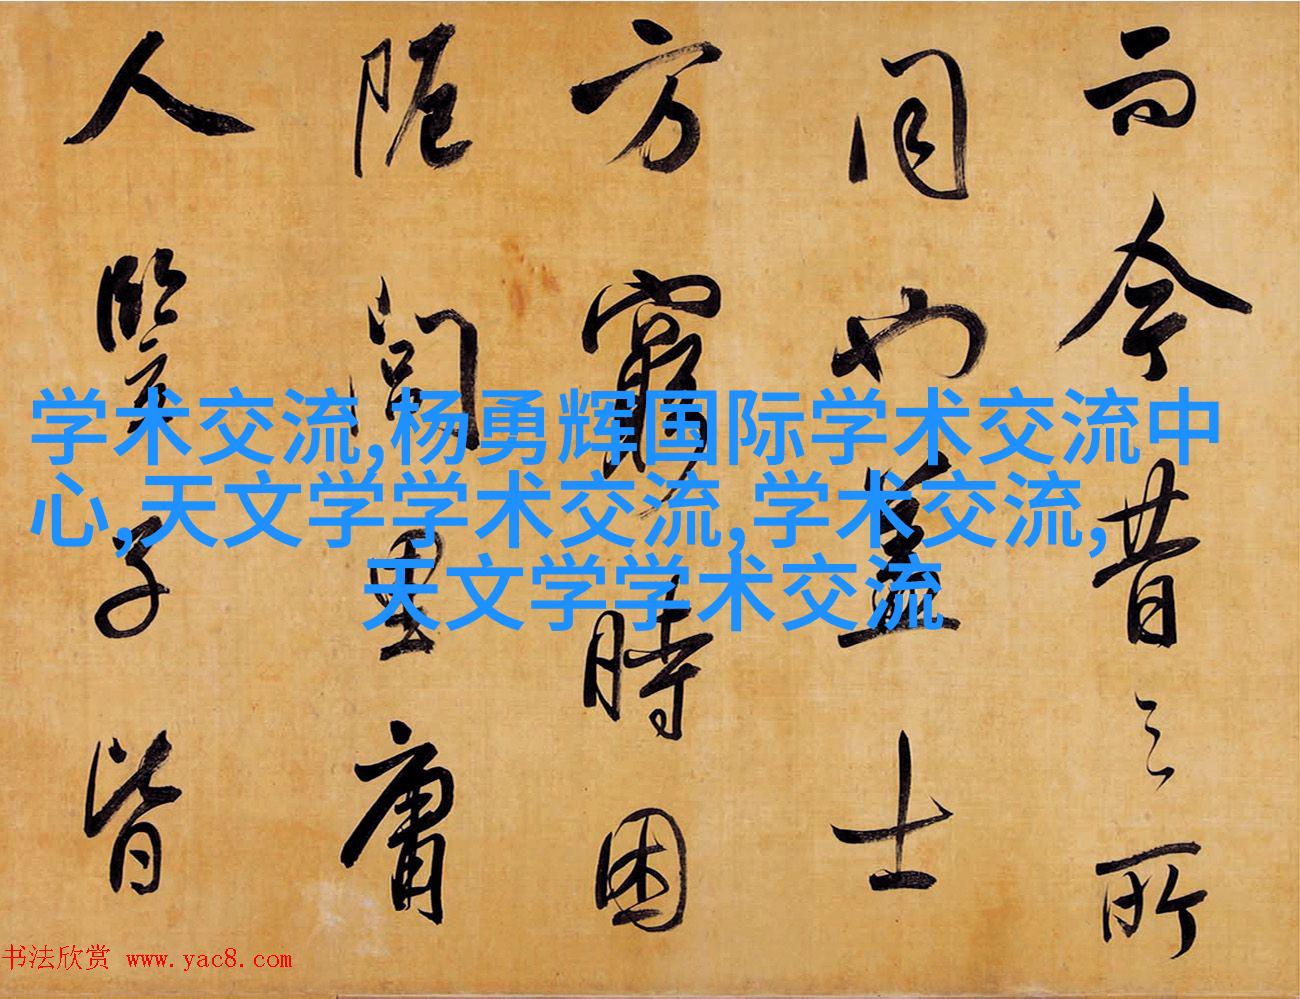 而今昔之所
同也盖士
方窮時困
阨閭里庸
人豎子皆
学术交流,杨勇辉国际学术交流中
心,天文学学术交流,学术交流,
天文学学术交流
书法欣赏 www.yac8.com